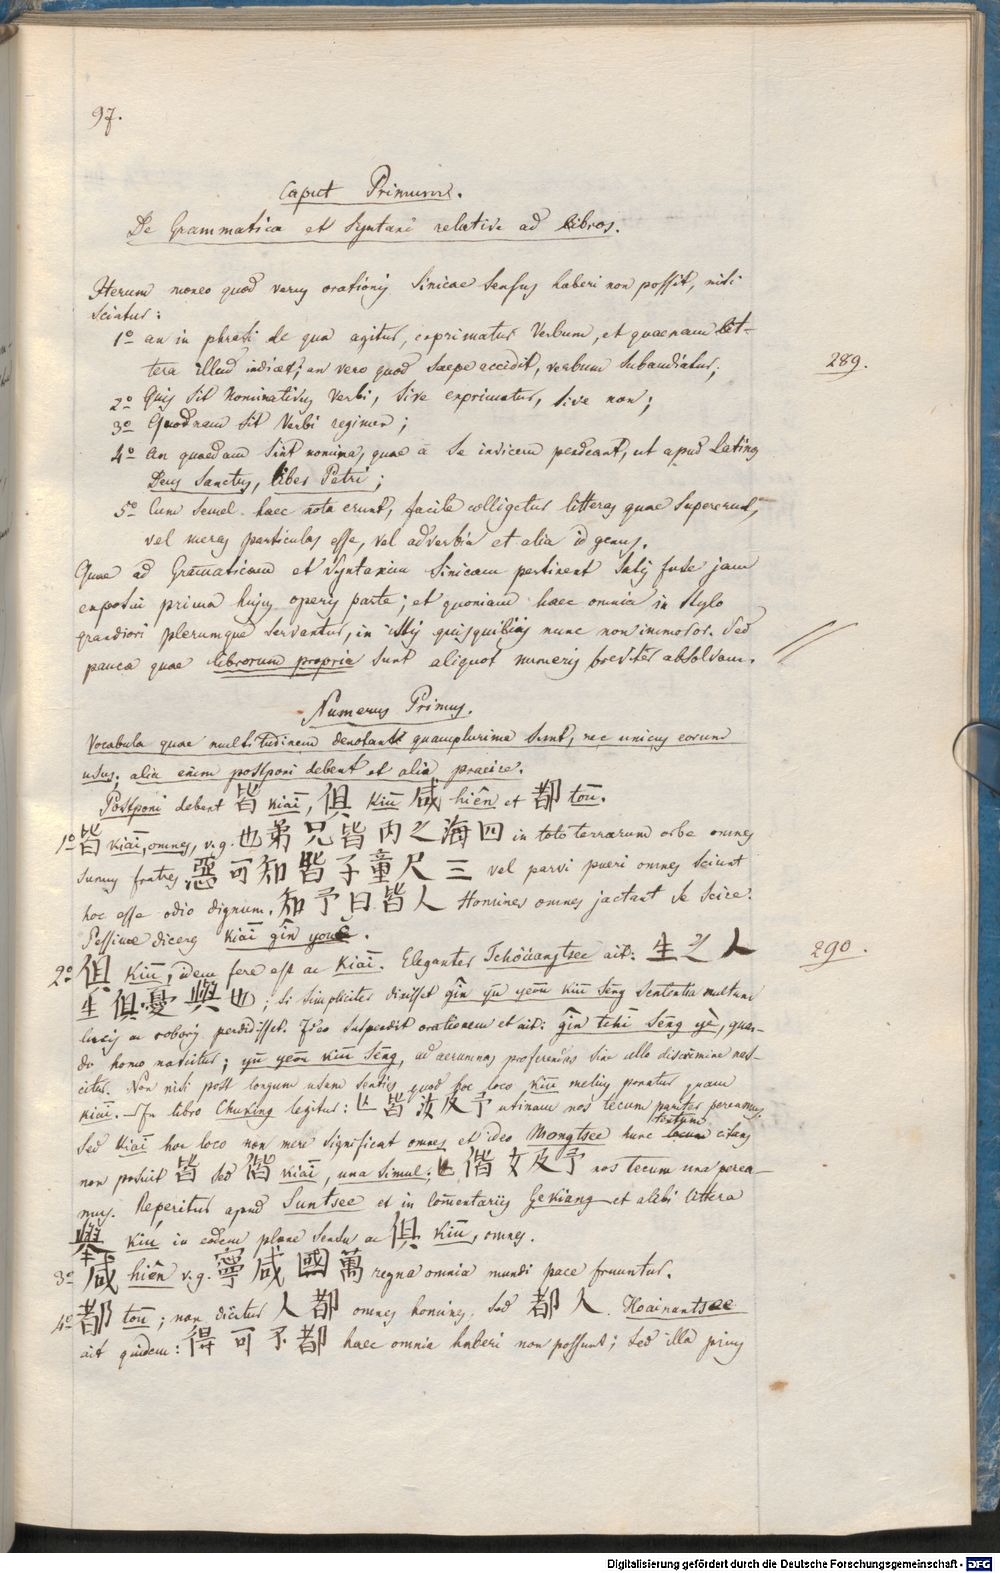 97.
Caput Primum.
De Grammatica et Syntaxi relative ad Libros.
Iterum moneo quod verus orationis Sinicae Sensus haberi non possit, nisi
Sciatur:
1º an in phrasi de qua agitur, exprimatur Verbum, et quaenam Lit-
tera illud indicet; an vero quod Saepe accidit, verbum Subaudiatur;
289.
2º Quis Sit Nominativus Verbi, Sive exprimatur, Sive non;
3º Quodnam Sit Verbi regimen;
4º An quaedam Sint nomina, quae a Se invicem pendeant, ut apud Latinos
Deus Sanctus, liber Petri;
5º Cum Semel haec nota erunt, facile colligetur litteras quae Supererunt,
vel meras particulas esse, vel adverbia et alia id genus.
Quae ad Gramaticam et Syntaxim Sinicam pertinent Satis fuse jam
exposui prima hujus operis parte; et quoniam haec omnia in Stylo
grandiori plerumque Servantur, in istis quisquiliis nunc non immoror. Sed
pauca quae librorum propria Sunt aliquot numeris breviter absolvam.
Numerus Primus.
Vocabula quae multitudinem denotant quamplurima Sunt, nec unicus eorum
usus; alia enim postponi debent et alia praeire.
Postponi debent 皆 kiāi, 俱 kiū 咸 hiên et 都 toū.
1º 皆 kiāi, omnes, v.g. 也弟兄皆內之海四 in toto terrarum orbe omnes
Sumus fratres 惡可知皆子童尺三 vel parvi pueri omnes Sciunt
hoc esse odio dignum. 知予曰皆人 Homines omnes jactant se Scire.
Pessime diceres kiāi gîn
290.
2º 俱 kiū, idem fere est ac kiāi. Eleganter Tchouangtsee ait: 生之人
生俱憂與也; Si Simpliciter dixisset gîn yu yeou kiū Sēng Sententia multum
lucis ac roboris perdidisset. Ideo Suspendit orationem et ait: gîn tchī Sēng yè, quan-
do homo nascitur; yu yeoū kiū Sēng, ad aerumnas proferendas Sine ullo discrimine nas-
citur. Non nisi post longum usum Senties quod hoc loco kiū melius ponatur quam
kiāi. – In libro Chuking legitur: 亾皆汝及予 utinam nos tecum pariter pereamus.
Sed kiāi hoc loco non mere Significat omnes et ideo Mongtsee hunc textum citans
non posuit 皆 Sed 偕 kiāi, una Simul; 亾偕女及予 nos tecum una perea-
mus. Reperitur apud Suntsee et in comentariis Yekiang et alibi littera
舉 kiú in eodem plane Sensu ac 俱 kiū, omnes.
3º 咸 hiên v.g. 寧咸國萬 regna omnia mundi pace fruuntur.
4º 都 toū; non dicitur 人都 omnes homines, Sed 都人. Hoainantsee
ait quidem: 得可不都 haec omnia haberi non possunt; Sed illa prius
Digitalisierung gefördert durch die Deutsche Forschungsgemeinschaft - DFG